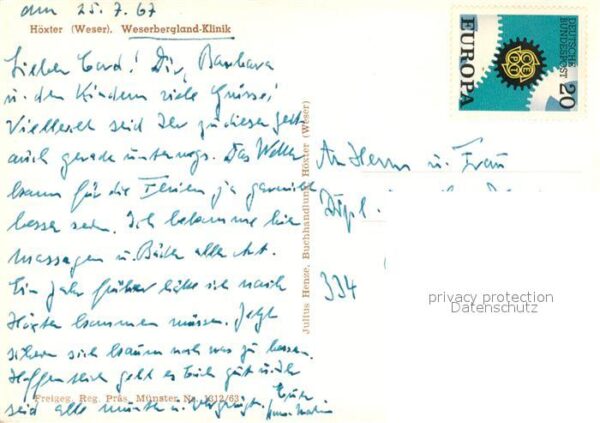 am 25.7.67
Höxter (Weser), Weserbergland-Klinik
Lieber Cord! Dir, Barbara
u. den Kindern viele Grüsse!
Vielleicht seid Ihr zu dieser Zeit
auch gerade unterwegs. Das Wetter
kann für die Ferien ja garnicht
besser sein. Ich bekomme hier
Massagen u. Bäder aller Art.
Ein Jahr früher hätte ich nach
Höxter kommen müssen. Jetzt
sich kaum noch was zu bessern.
Hoffentlich geht es Euch gut u. Ihr
seid alle munter u. vergnügt. Eure
Freigeg. Reg. Präs. Münster No. 1312/63
Julius Henze, Buchhandlung, Höxter (Weser)
DEUTSCHE BUNDESPOST
20
EUROPA
CEPT
An Herrn u. Frau
Dipl.
334
privacy protection
Datenschutz